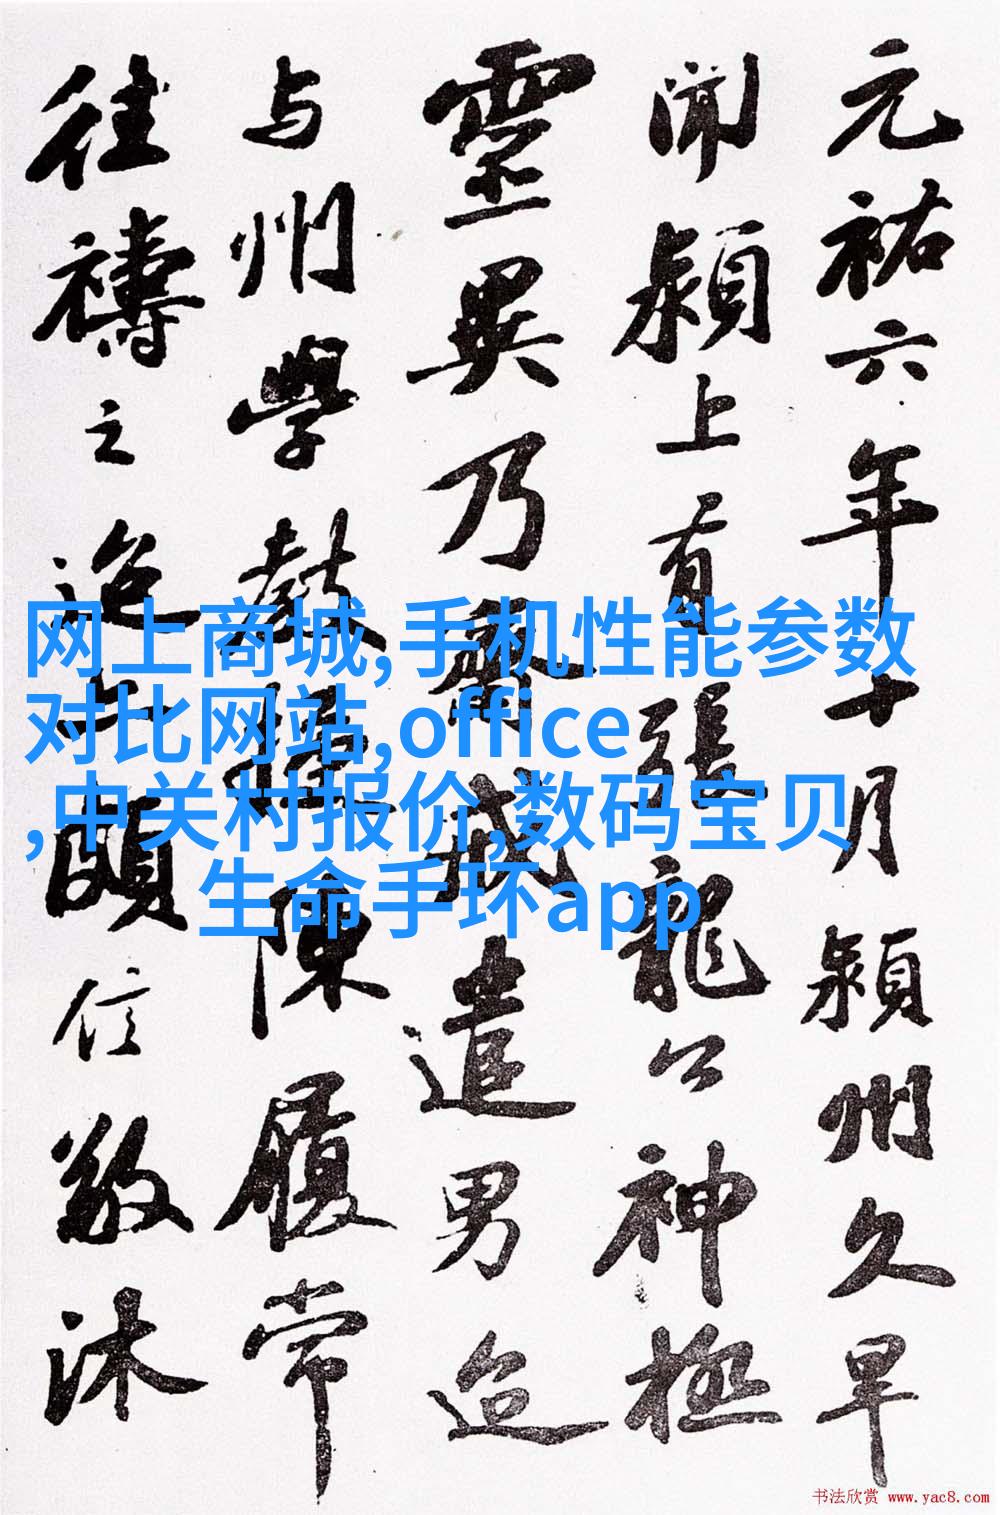 元祐六年十月潁州久旱
聞潁上有張龍公神極
靈異乃齋戒遣男迨
与州學教授陳履常
往禱之迨亦頗信敬沐
网上商城,手机性能参数
对比网站,office
,中关村报价,数码宝贝
生命手环app
书法欣赏 www.yac8.com